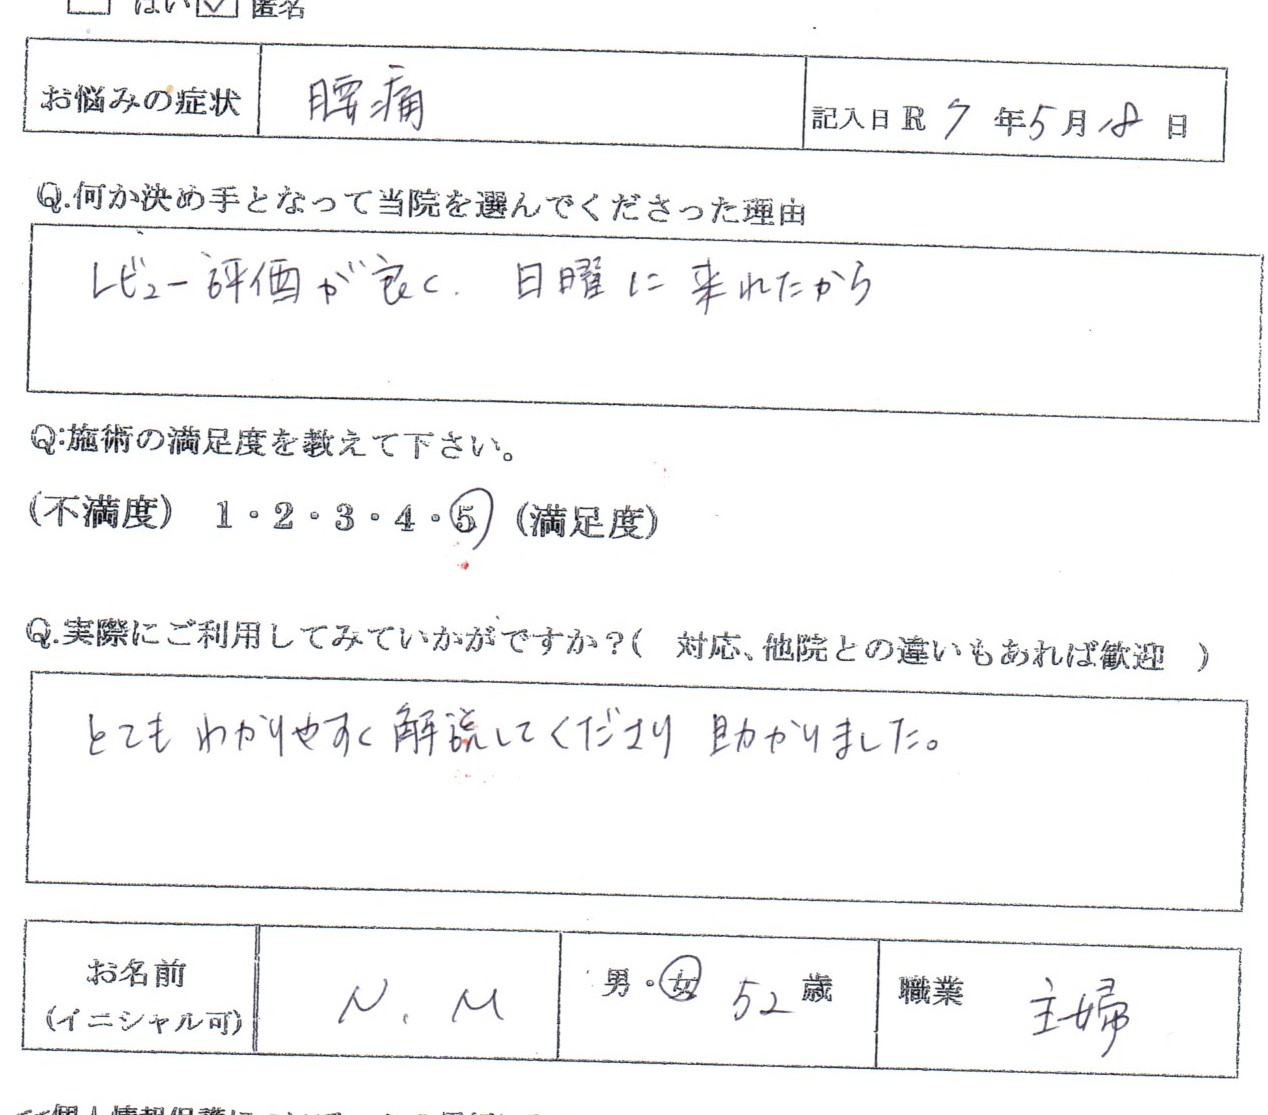 □ はい ☑ 匿名
お悩みの症状 腰痛 記入日 R 7 年 5 月 18 日
Q.何か決め手となって当院を選んでくださった理由
レビュー評価が良く、日曜に来れたから
Q:施術の満足度を教えて下さい。
(不満度) 1・2・3・4・5 (満足度)
Q.実際にご利用してみていかがですか?( 対応、他院との違いもあれば歓迎 )
とてもわかりやすく解説してくださり助かりました。
お名前 N.M 男・女 52 歳 職業 主婦
(イニシャル可)
個人情報保護